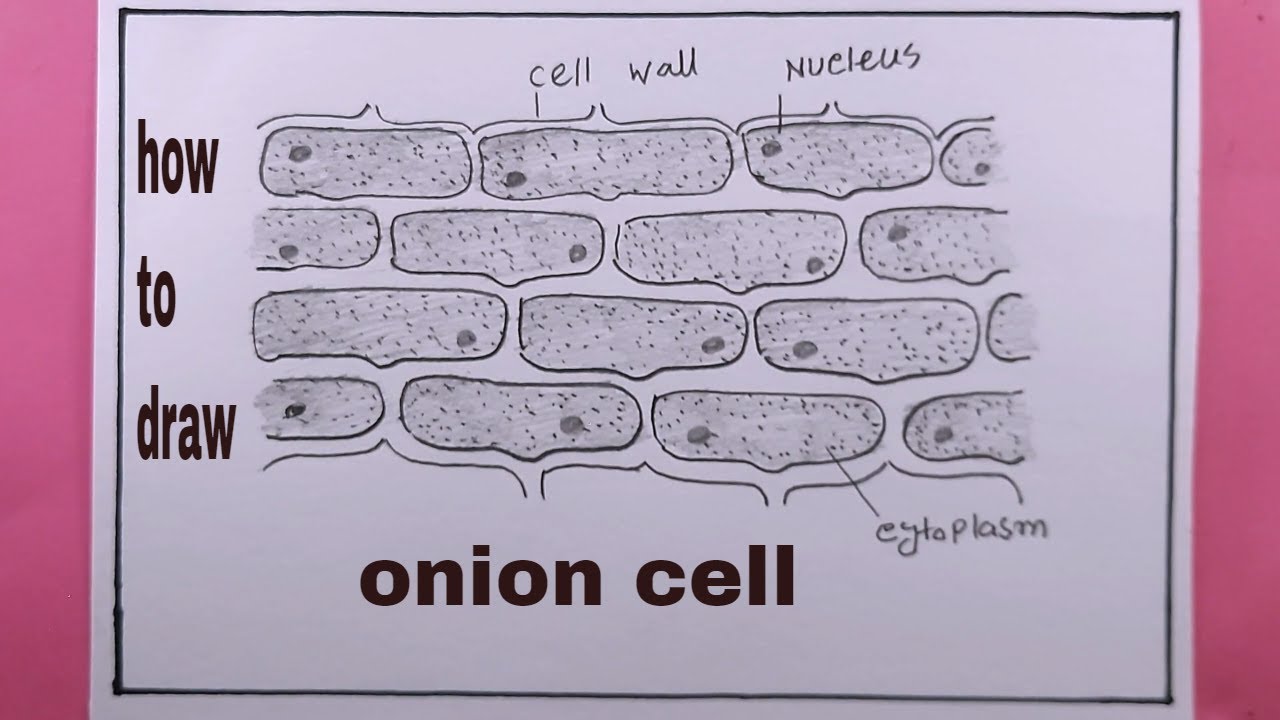 cell wall
Nucleus
how
to
draw
cytoplasm
onion cell